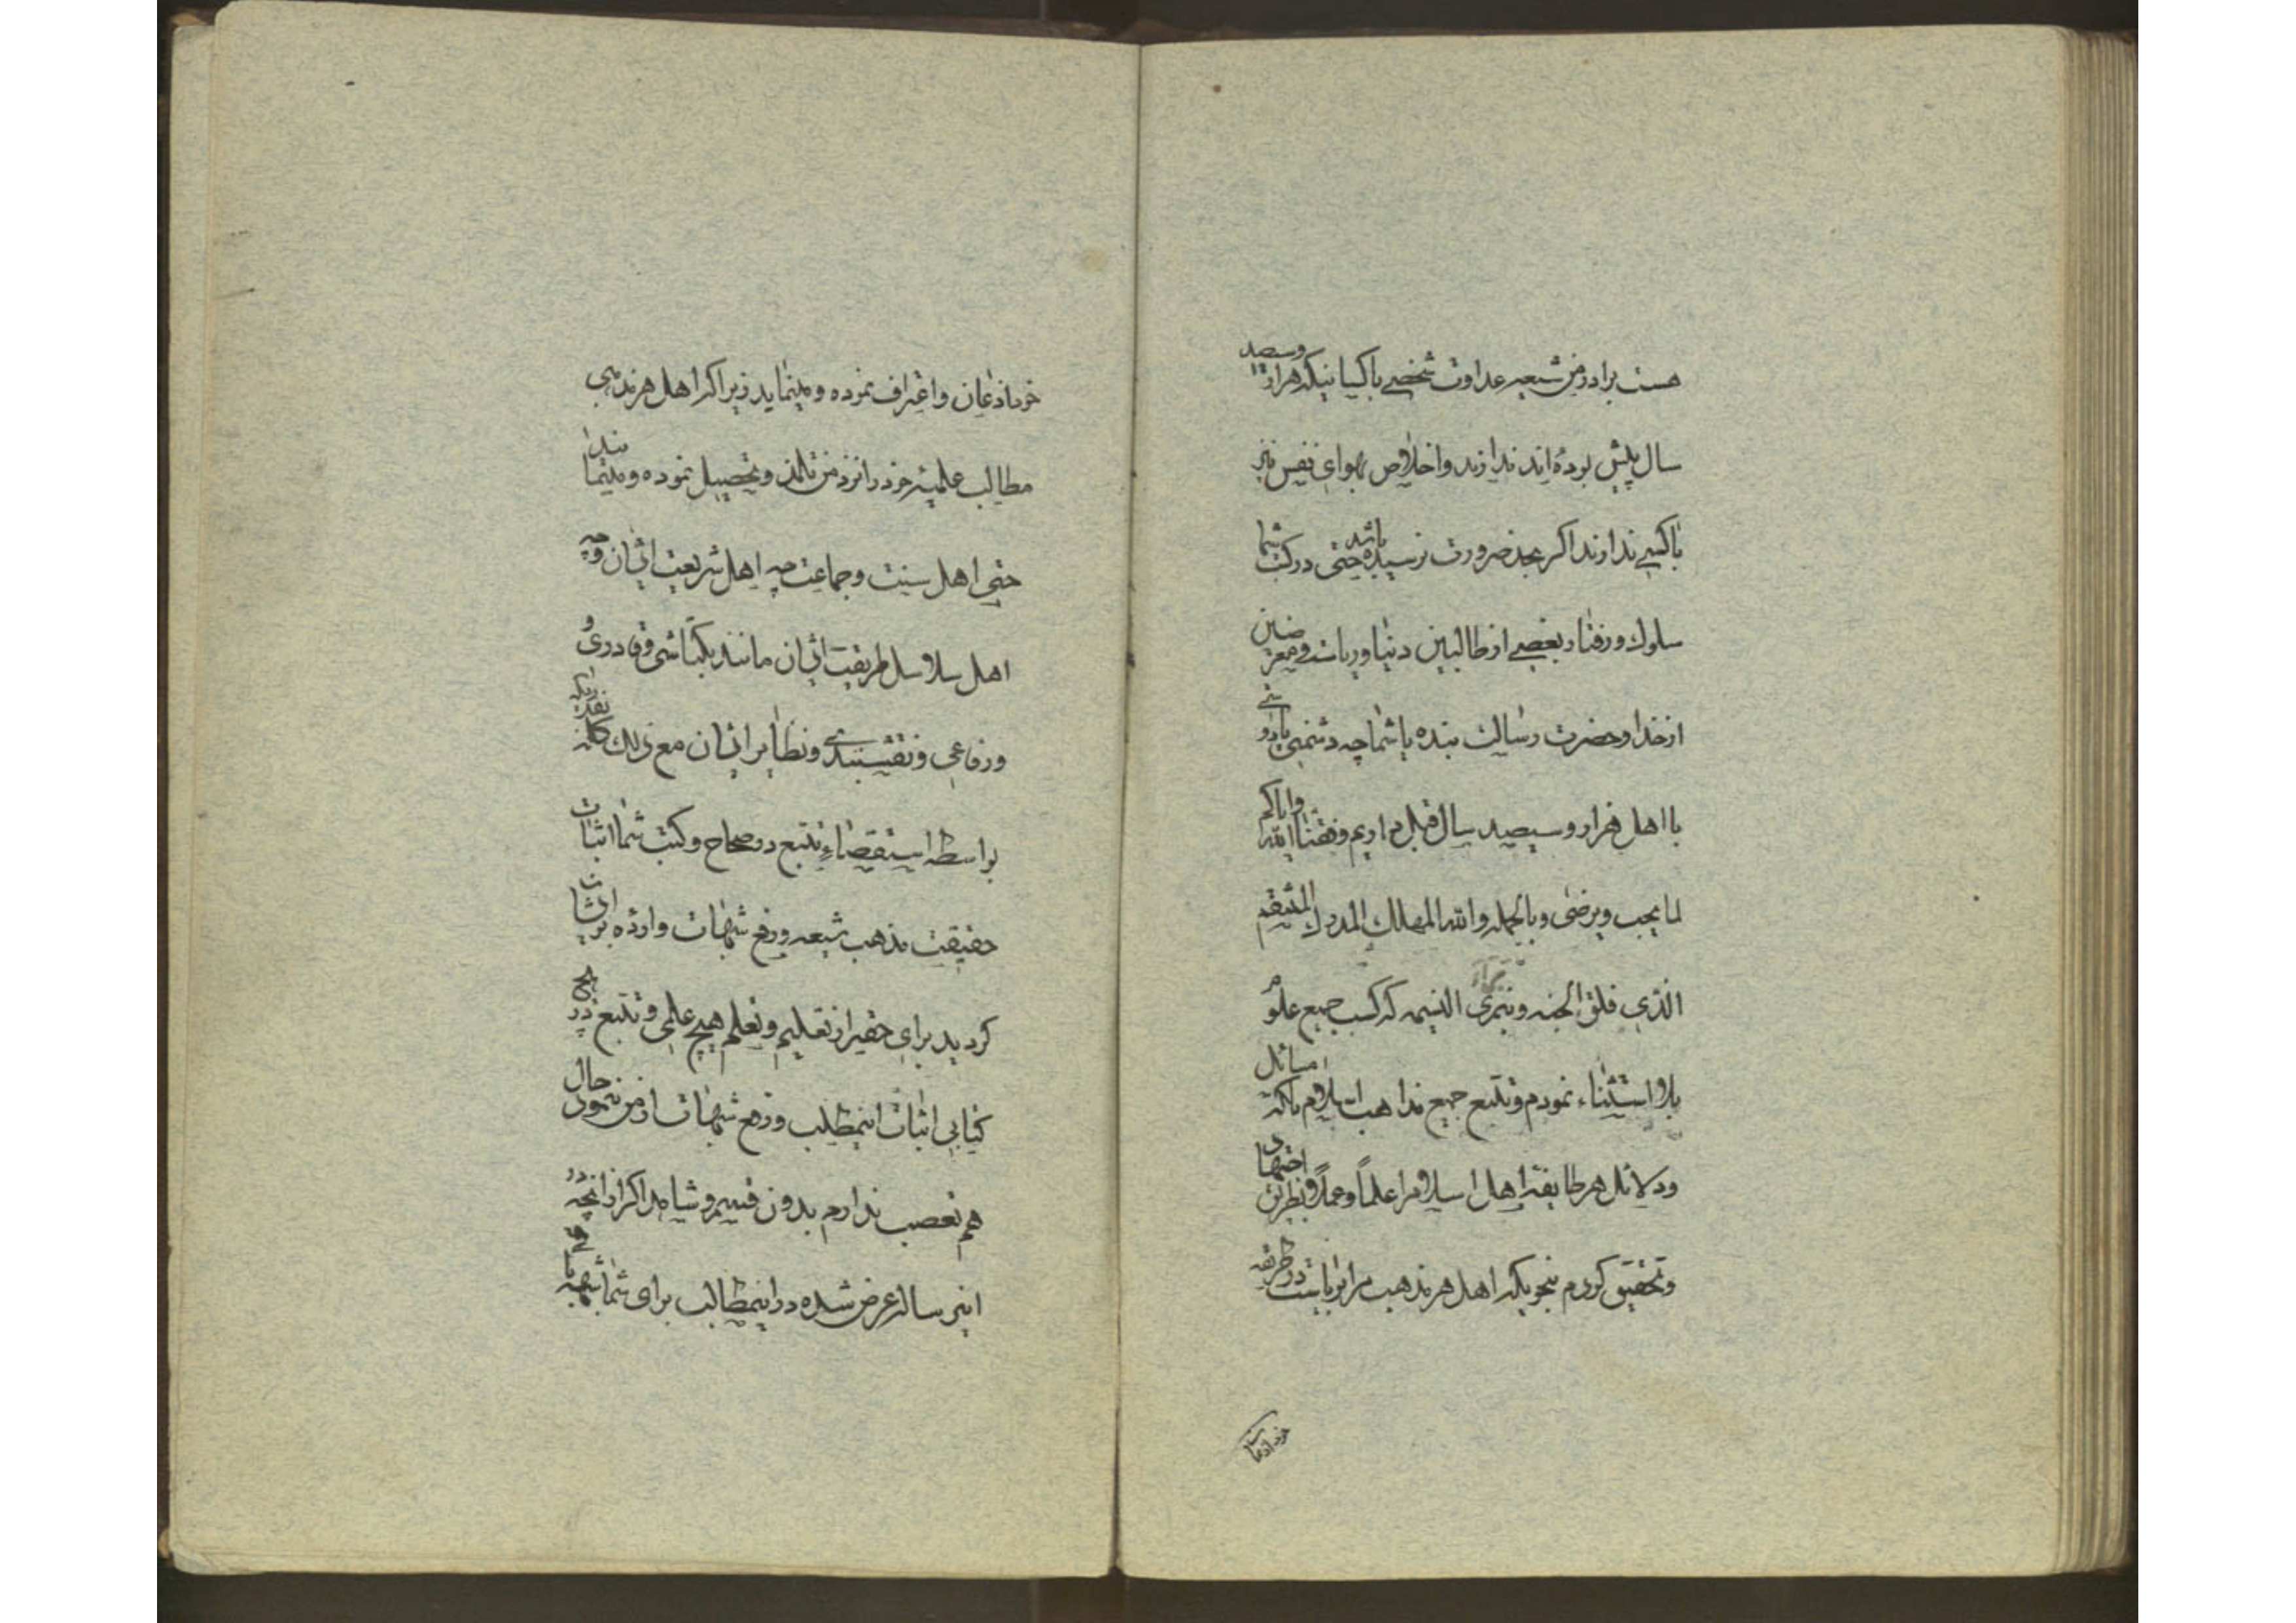 هست برادر من شیعه عداوت شخصی با کسانیکه هزار و سیصد
سال پیش بوده‌اند ندارند و اخلاص بهوای نفس نیز
با کسی ندارند اگر بحد ضرورت نرسیده باشد حتی در کتب شما
سلوک و رفتار بعضی از طالبین دنیا و ریاست و معرضین
از خدا و حضرت رسالت بنده با شما چه دشمنی یا دوستی
با اهل هزار و سیصد سال قبل داریم وفقنا الله وایاکم
لما یحب و یرضی و بالجمله والله المهلک المدرک المنتقم
الذی فلق الحبه و بری النسمه که کسب جمیع علوم
بلا استثناء نمودم و تتبع جمیع مذاهب اسلام با کل مسائل
ودلائل هر طایفه اهل اسلام را علماً وعملاً و بطریق اجتهادی
و تحقیق کردم بنحویکه اهل هر مذهب مرا بریاست در طریقه
خود اذعان
خود اذعان و اعتراف نموده و مینماید زیرا که اهل هر مذهبی
مطالب علمیه خود را نزد من تلمذ و تحصیل نموده و مینمایند
حتی اهل سنت و جماعت چه اهل شریعت ایشان و چه
اهل سلاسل طریقت ایشان مانند بکتاشی و قادری و
و رفاعی و نقشبندی و نظایر ایشان مع ذلک کله
بواسطه استقصاء و تتبع در صحاح و کتب شما اثبات
حقیقت مذهب شیعه و رفع شبهات وارده بر ایشان
کردید برای حقیر از تعلیم و تعلم هیچ علمی و تتبع در هیچ
کتابی اثبات اینمطلب و رفع شبهات از من ننمود حال
هم تعصب ندارم بدون قسم و شاهد اگر از آنچه در
این رساله عرض شده در اینمطالب برای شما شبهه باقی